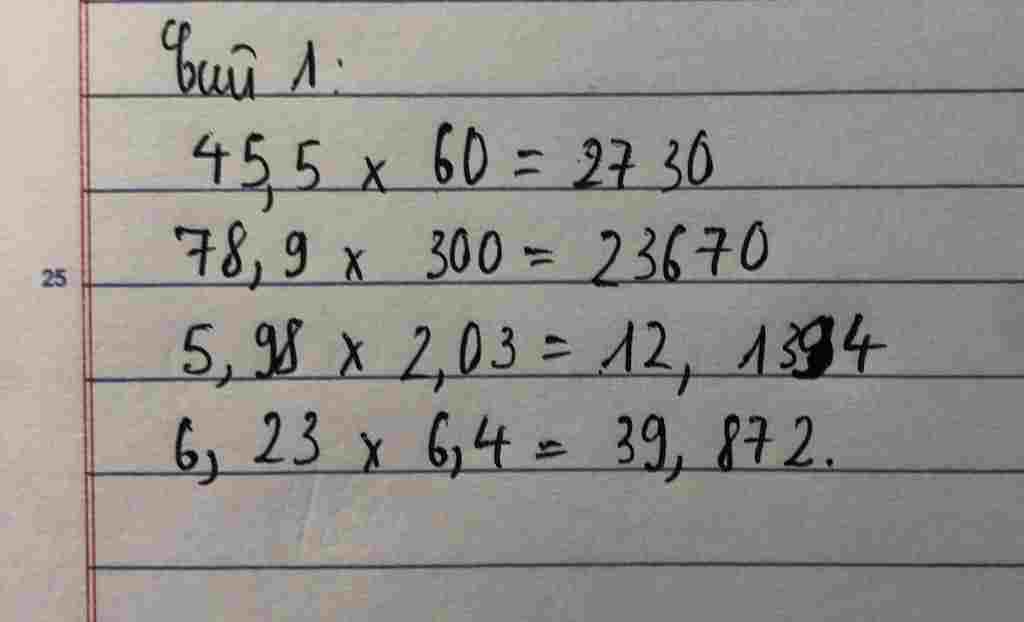 Bài 1:
45,5 x 60 = 2730
78,9 x 300 = 23670
25
5,98 x 2,03 = 12,1394
6,23 x 6,4 = 39,872.